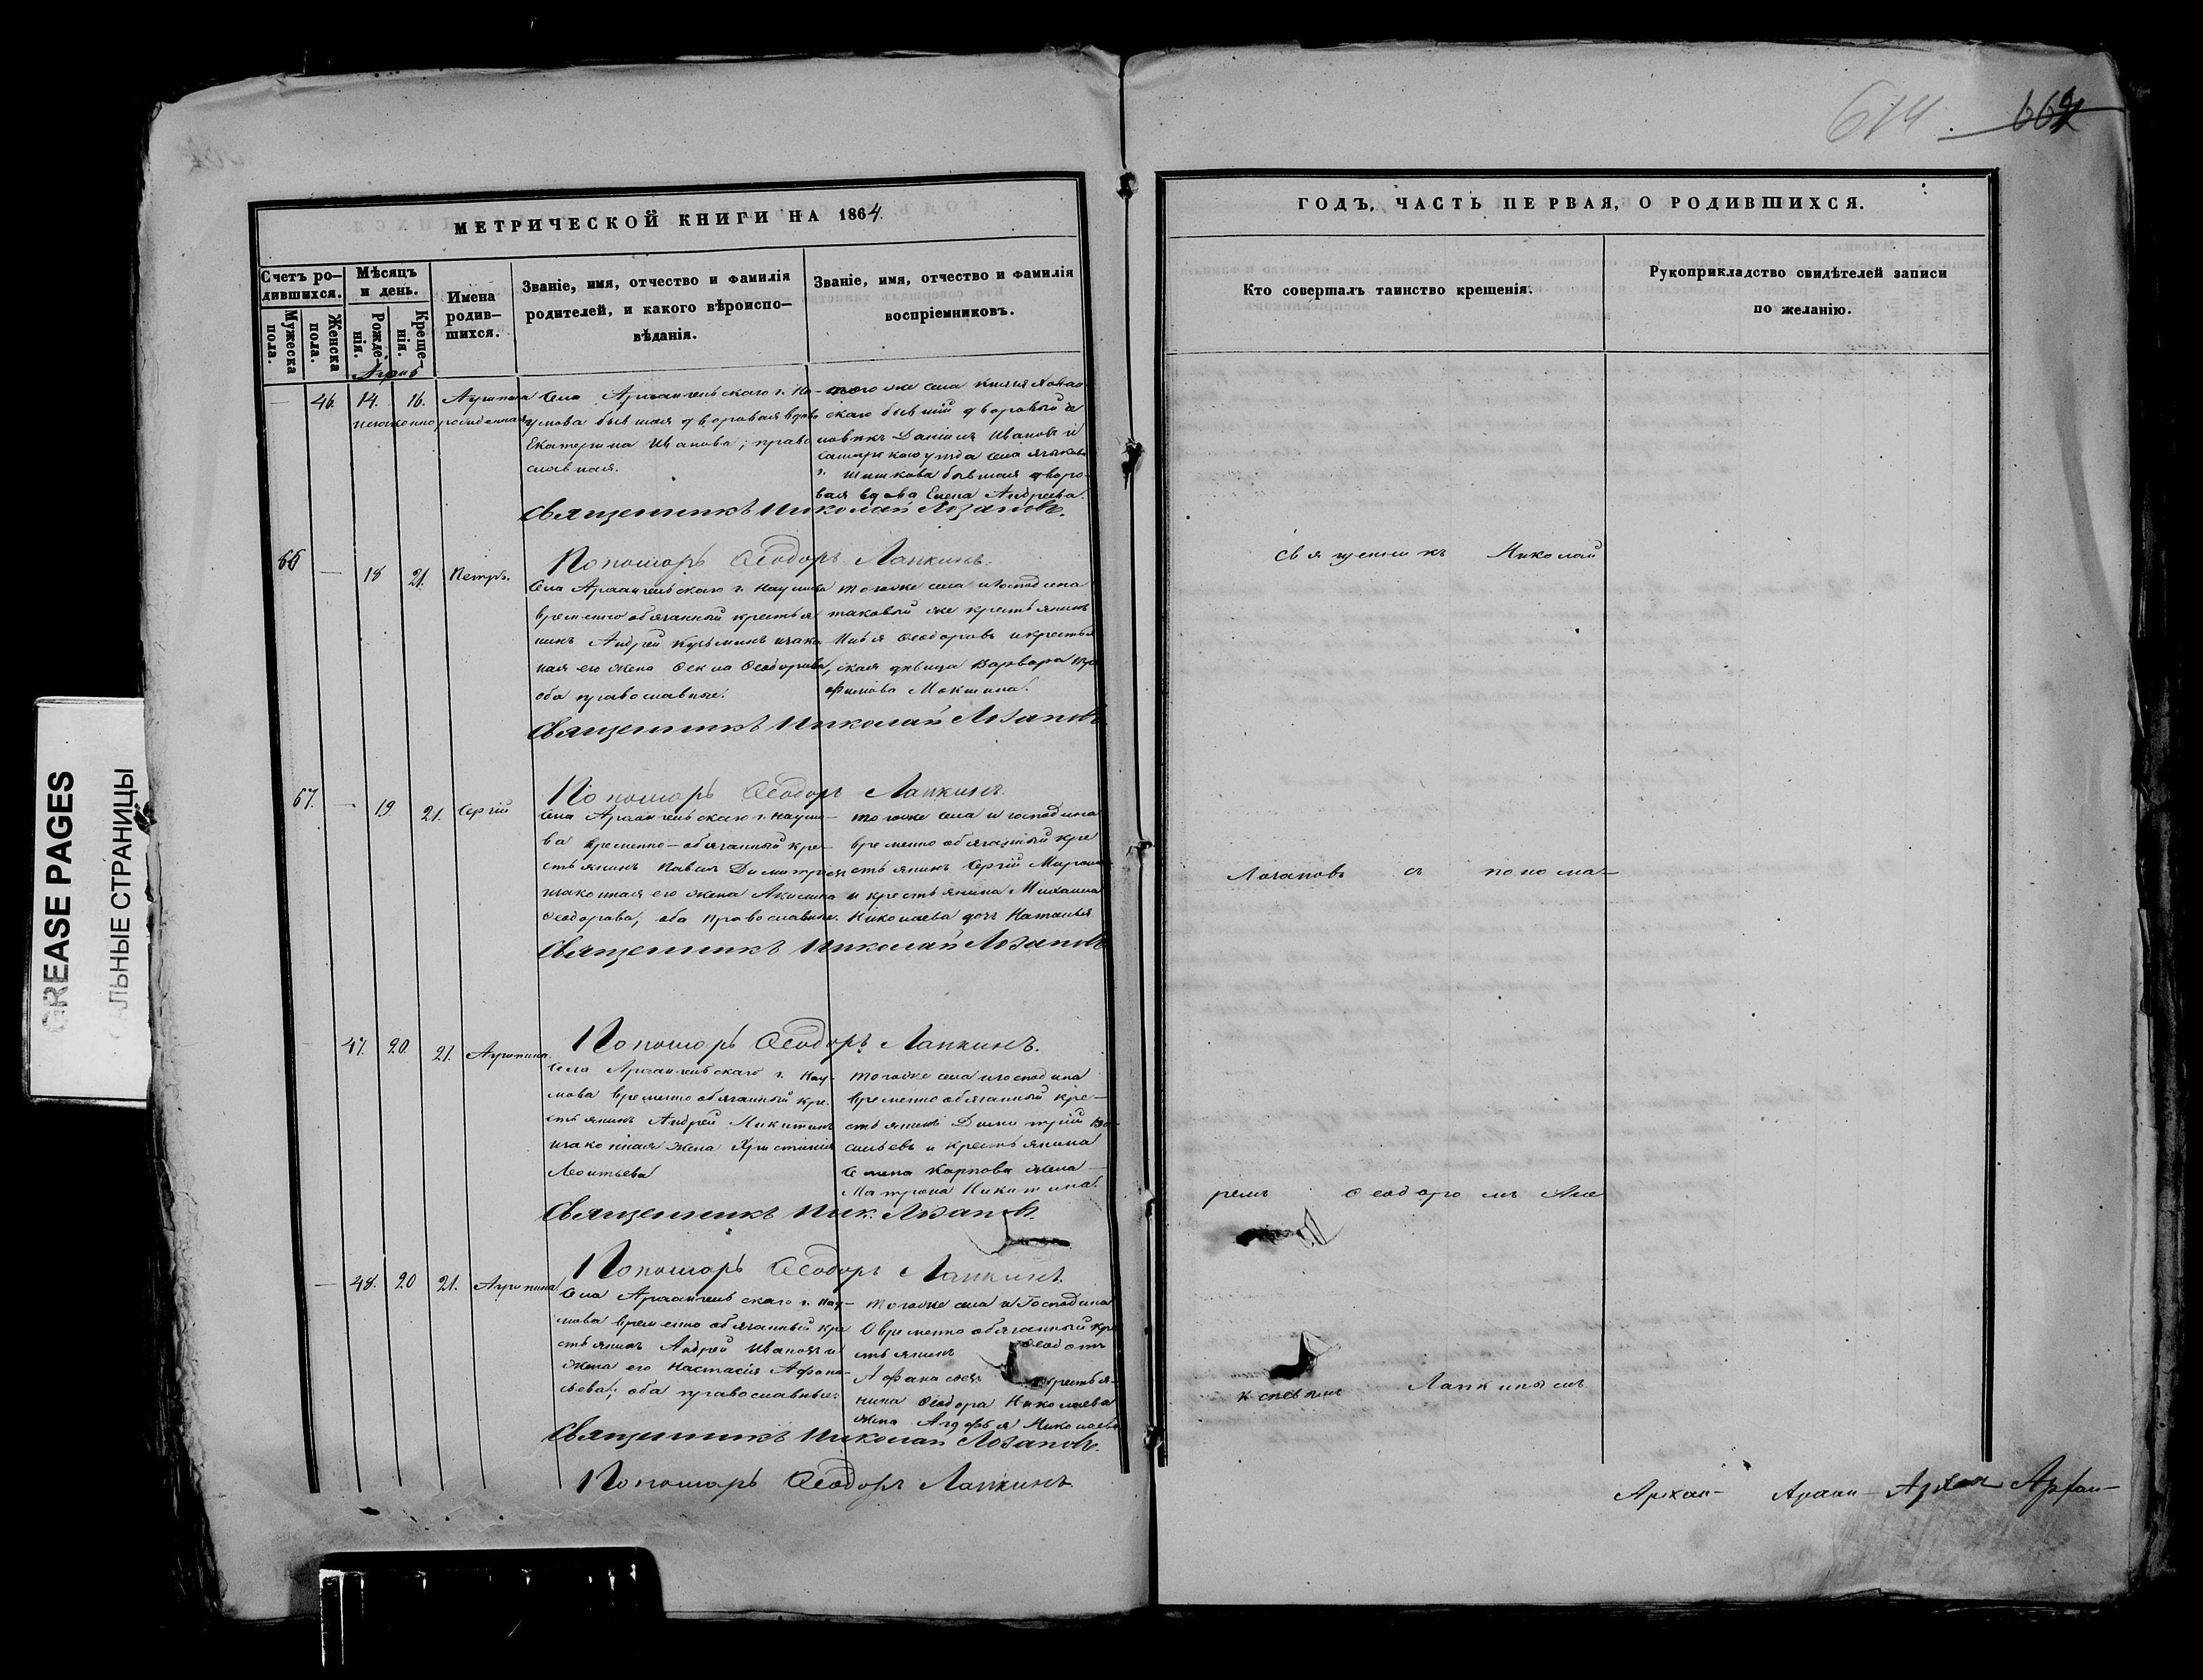 614. 662
МЕТРИЧЕСКОЙ КНИГИ НА 1864.
Счетъ ро-
дившихся.
Мужеска
пола.
Женска
пола.
Мѣсяцъ
и день.
Рожде-
нія.
Креще-
нія.
Имена
родив-
шихся.
Званіе, имя, отчество и фамилія
родителей, и какого вѣроиспо-
вѣданія.
Званіе, имя, отчество и фамилія
воспріемниковъ.
46. 14. 16. Агрипина
незаконнорожденная
Села Архангельскаго г. На-
умова бывшая дворовая вдова
Екатерина Иванова; право
славная.
того же села Князя
скаго бывшій дворовый че
ловѣкъ Даніилъ Ивановъ и
Самарскаго уѣзда села
г. Шишкова бывшая дворо-
вая вдова Елена Андреева.
Священникъ Николай Лозановъ.
Пономарь Ѳеодоръ Лапкинъ.
66 — 18 21. Петръ.
Села Архангельскаго г. Наумова
временно обязанный крестья
нинъ Андрей Кузьминъ изако
ная его жена Ѳекла Ѳеодорова,
оба православные.
того же села и господина
таковый же крестьянинъ
Илья Ѳеодоровъ и крестья
ская дѣвица Варвара
Мокшина.
Священникъ Николай Лозановъ
Пономарь Ѳеодоръ Лапкинъ.
67. — 19. 21. Сергій
Села Архангельскаго г. Наумо-
ва временно-обязанный кре-
стьянинъ Павелъ Димитріевъ
изаконная его жена Акилина
Ѳеодорова, оба православные.
того же села и господина
временно обязанный кре
стьянинъ Сергій
и крестьянина Михаила
Николаева дочь Наталья
Священникъ Николай Лозановъ
Пономарь Ѳеодоръ Лапкинъ.
47. 20. 21. Агрипина.
Села Архангельскаго г. Нау-
мова временно обязанный кре-
стьянинъ Андрей Никитинъ
изаконная жена Христинія
Леонтьева
того же села и господина
временно обязанный кре-
стьянинъ Димитрій Ва-
сильевъ и крестьянина
Семена Карпова жена —
Матрона Никитина.
Священникъ Ник. Лозановъ.
Пономарь Ѳеодоръ Лапкинъ.
— 48. 20 21. Агрипина
Села Архангельскаго г. Нау-
мова временно обязанный кре
стьянинъ Андрей Ивановъ и
жена его Настасія Афана-
сьева; оба православные.
того же села и Господина
временно обязанный кре
стьянинъ Ѳеодотъ
Афанасьевъ крестья-
нина Ѳеодора Николаева
жена Авдофья Николаева
Священникъ Николай Лозановъ.
Пономарь Ѳеодоръ Лапкинъ
ГОДЪ, ЧАСТЬ ПЕРВАЯ, О РОДИВШИХСЯ.
Кто совершалъ таинство крещенія.
Рукоприкладство свидѣтелей записи
по желанію.
Священникъ Николай
Лозановъ съ понома-
ремъ Ѳеодоромъ Але
ксѣевымъ Лапкинымъ
Архан-
CREASE PAGES
ЛЬНЫЕ СТРАНИЦЫ